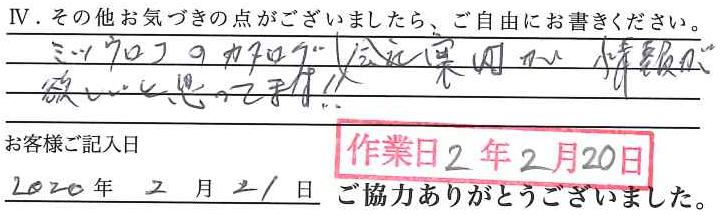 Ⅳ．その他お気づきの点がございましたら、ご自由にお書きください。
ミツウロコのカタログ/会社案内か 情報が
欲しいと思ってます!!
お客様ご記入日
作業日2年2月20日
2020年 2 月 21 日 ご協力ありがとうございました。